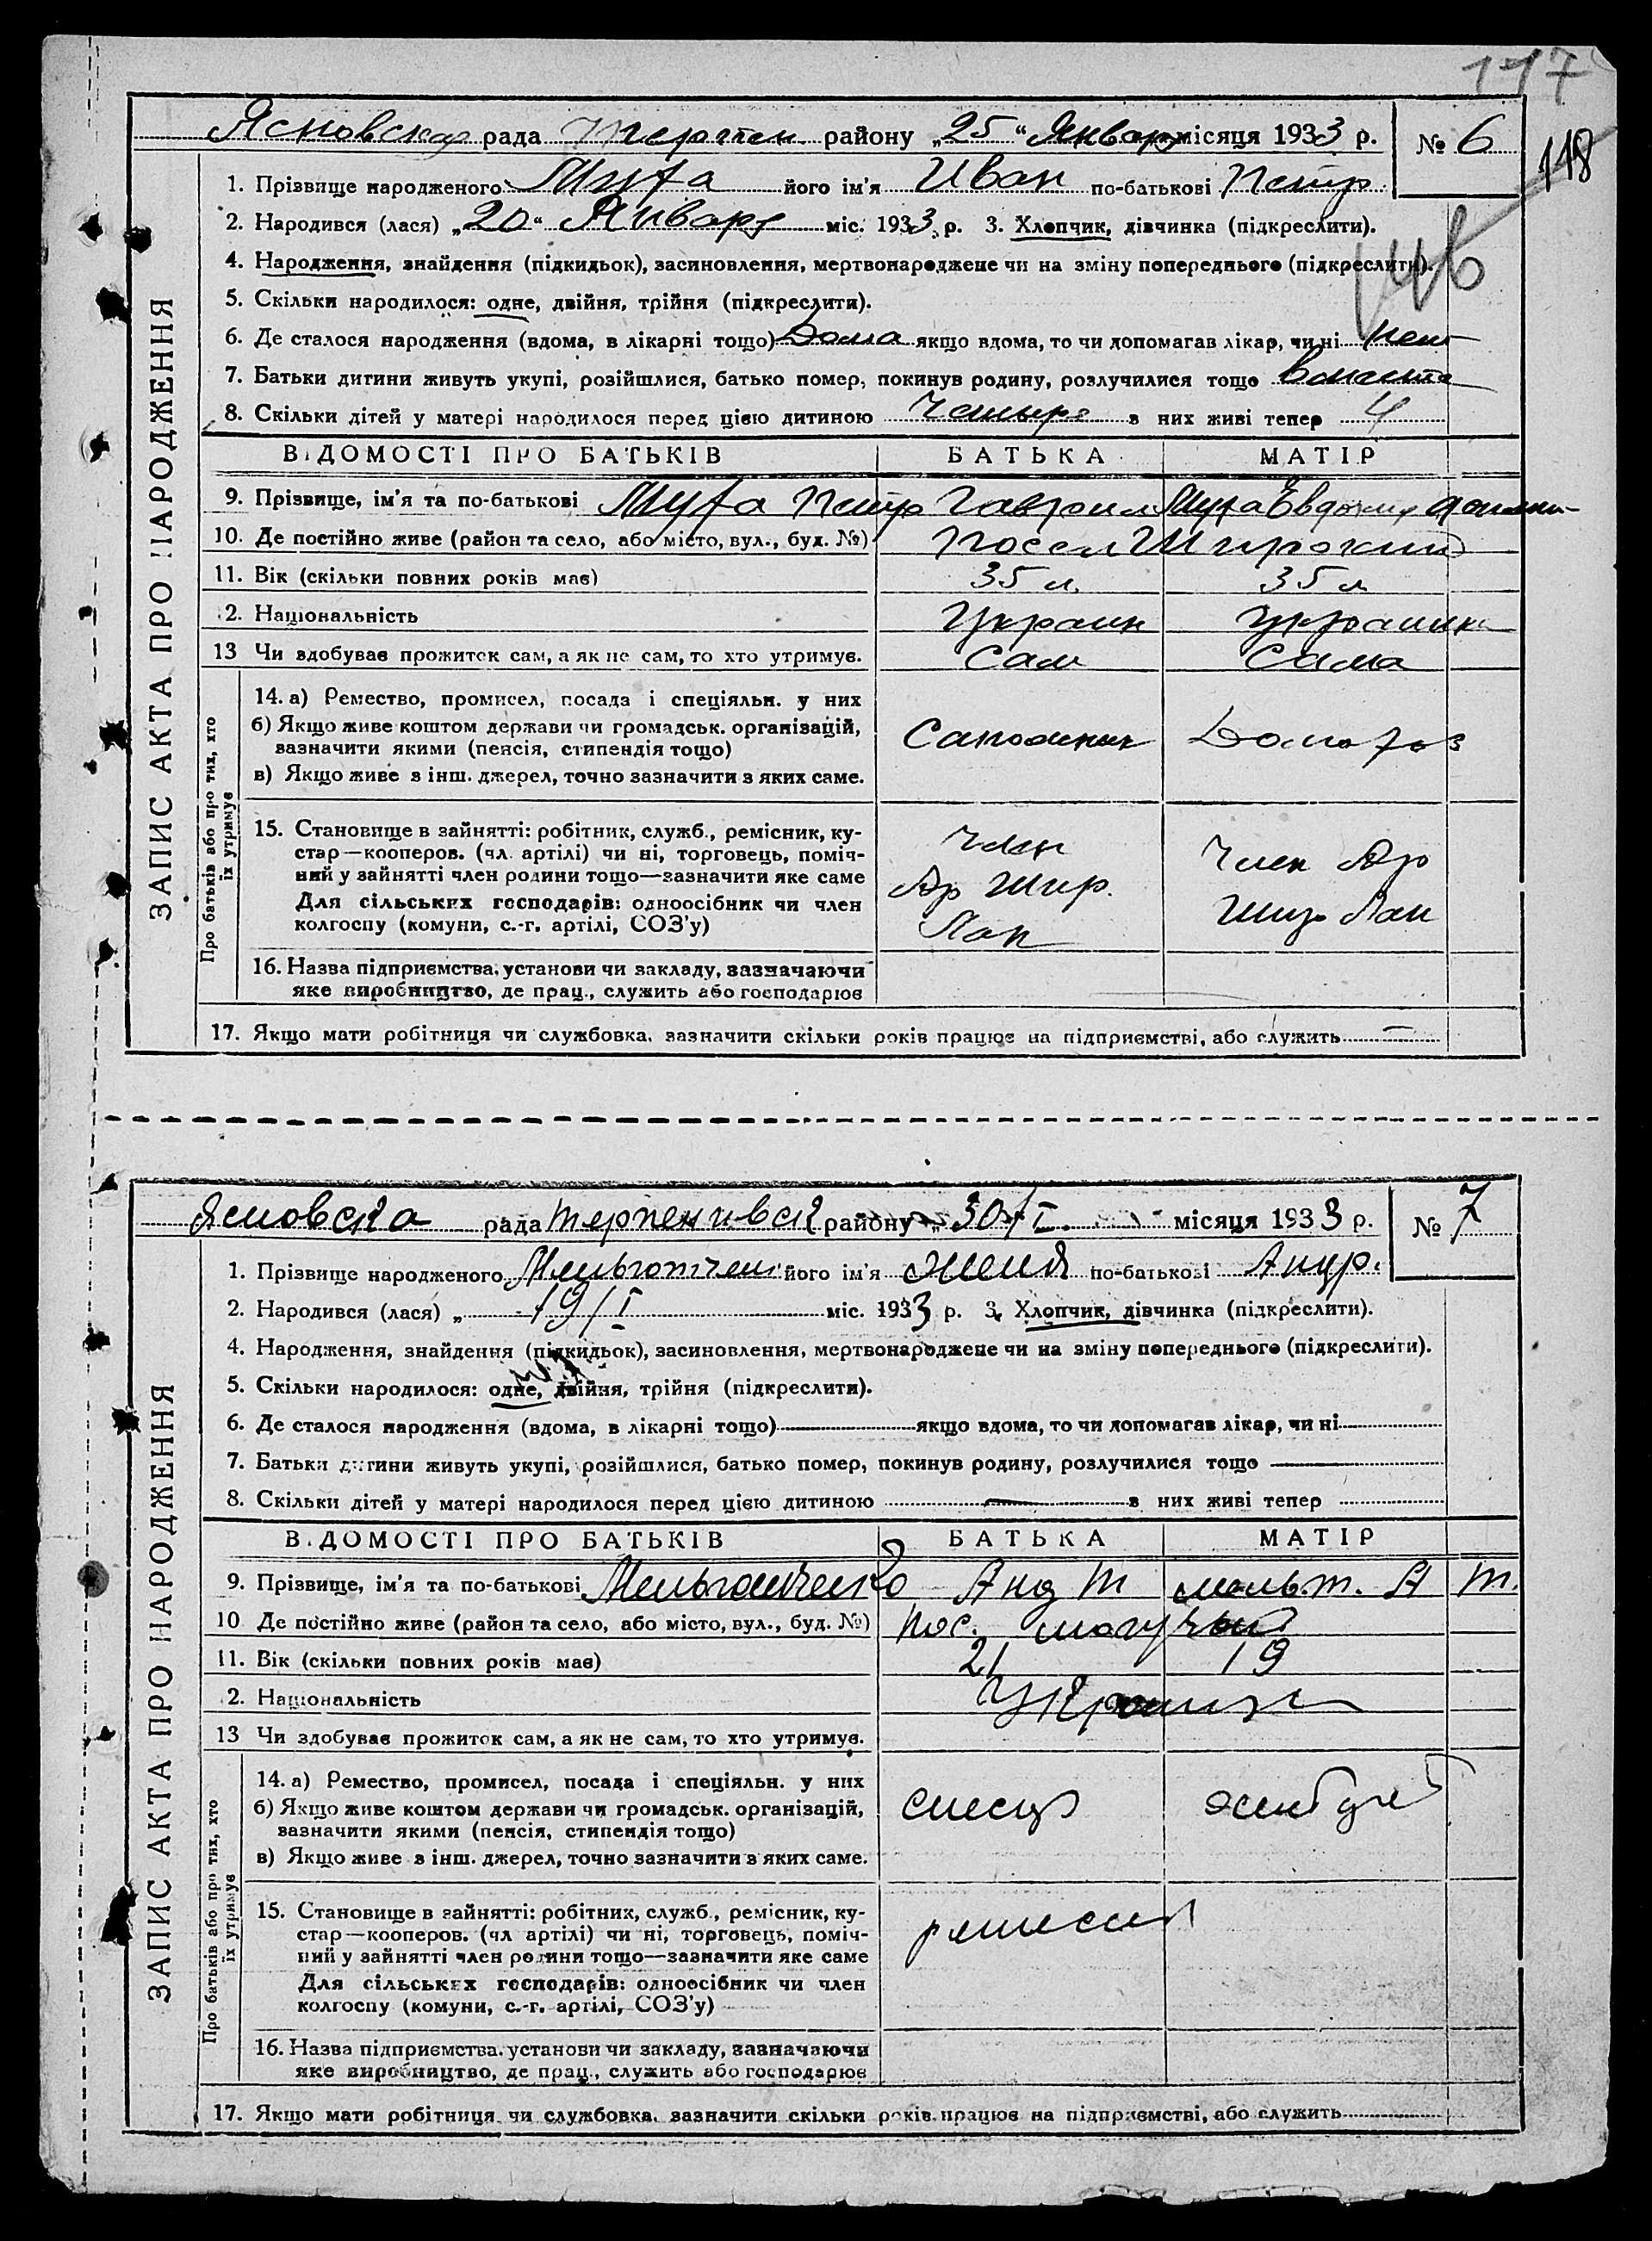 117
Ясновская рада Терпен. району „25“ Январ місяця 1933 р. № 6
118
1. Прізвище народженого Муха його ім'я Иван по-батькові Петр.
2. Народився (лася) „20“ Январ міс. 1933 р. 3. Хлопчик, дівчинка (підкреслити).
4. Народження, знайдення (підкидьок), засиновлення, мертвонароджене чи на зміну попереднього (підкреслити).
5. Скільки народилося: одне, двійня, трійня (підкреслити).
6. Де сталося народження (вдома, в лікарні тощо) Дома якщо вдома, то чи допомагав лікар, чи ні нет
7. Батьки дитини живуть укупі, розійшлися, батько помер, покинув родину, розлучилися тощо вместе
8. Скільки дітей у матері народилося перед цією дитиною Четыре з них живі тепер 4
ЗАПИС АКТА ПРО НАРОДЖЕННЯ
ВІДОМОСТІ ПРО БАТЬКІВ БАТЬКА МАТІР
9. Прізвище, ім'я та по-батькові Муха Петр Гаврил Муха Евдокия
10. Де постійно живе (район та село, або місто, вул., буд. №) Посел Широкий
11. Вік (скільки повних років має) 35 л. 35 л
12. Національність Украин Украинка
13 Чи здобуває прожиток сам, а як не сам, то хто утримує. Сам Сама
Про батьків або про тих, хто їх утримує
14. а) Ремество, промисел, посада і спеціяльн. у них
б) Якщо живе коштом держави чи громадськ. організацій,
зазначити якими (пенсія, стипендія тощо) Сапожник Домохоз
в) Якщо живе з інш. джерел, точно зазначити з яких саме.
15. Становище в зайнятті: робітник, служб., ремісник, ку-
стар—кооперов. (чл. артілі) чи ні, торговець, поміч-
ний у зайнятті член родини тощо—зазначити яке саме
Для сільських господарів: одноосібник чи член
колгоспу (комуни, с.-г. артілі, СОЗ'у)
Член
Ар Шир.
Лан
Член Ар
Шир Лан
16. Назва підприємства, установи чи закладу, зазначаючи
яке виробництво, де прац., служить або господарює
17. Якщо мати робітниця чи службовка, зазначити скільки років працює на підприємстві, або служить —
Ясновска рада Терпенивск району „30/I. місяця 1933 р. № 7
1. Прізвище народженого його ім'я Женя по-батькові Андр.
2. Народився (лася) „ 19/I міс. 1933 р. 3. Хлопчик, дівчинка (підкреслити).
4. Народження, знайдення (підкидьок), засиновлення, мертвонароджене чи на зміну попереднього (підкреслити).
5. Скільки народилося: одне, двійня, трійня (підкреслити).
6. Де сталося народження (вдома, в лікарні тощо) якщо вдома, то чи допомагав лікар, чи ні
7. Батьки дитини живуть укупі, розійшлися, батько помер, покинув родину, розлучилися тощо
8. Скільки дітей у матері народилося перед цією дитиною — з них живі тепер
ЗАПИС АКТА ПРО НАРОДЖЕННЯ
ВІДОМОСТІ ПРО БАТЬКІВ БАТЬКА МАТІР
9. Прізвище, ім'я та по-батькові Анд Т А Т.
10 Де постійно живе (район та село, або місто, вул., буд. №) пос. могучый
11. Вік (скільки повних років має) 21 19
12. Національність
13 Чи здобуває прожиток сам, а як не сам, то хто утримує.
Про батьків або про тих, хто їх утримує
14. а) Ремество, промисел, посада і спеціяльн. у них
б) Якщо живе коштом держави чи громадськ. організацій,
зазначити якими (пенсія, стипендія тощо)
в) Якщо живе з інш. джерел, точно зазначити з яких саме.
15. Становище в зайнятті: робітник, служб., ремісник, ку-
стар—кооперов. (чл. артілі) чи ні, торговець, поміч-
ний у зайнятті член родини тощо—зазначити яке саме
Для сільських господарів: одноосібник чи член
колгоспу (комуни, с.-г. артілі, СОЗ'у)
16. Назва підприємства, установи чи закладу, зазначаючи
яке виробництво, де прац., служить або господарює
17. Якщо мати робітниця чи службовка, зазначити скільки років працює на підприємстві, або служить